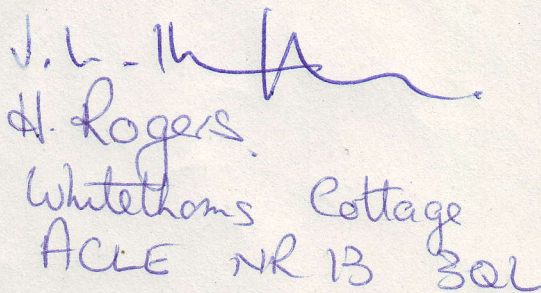 H. Rogers.
Whitethorns Cottage
ACLE NR 13 3QL